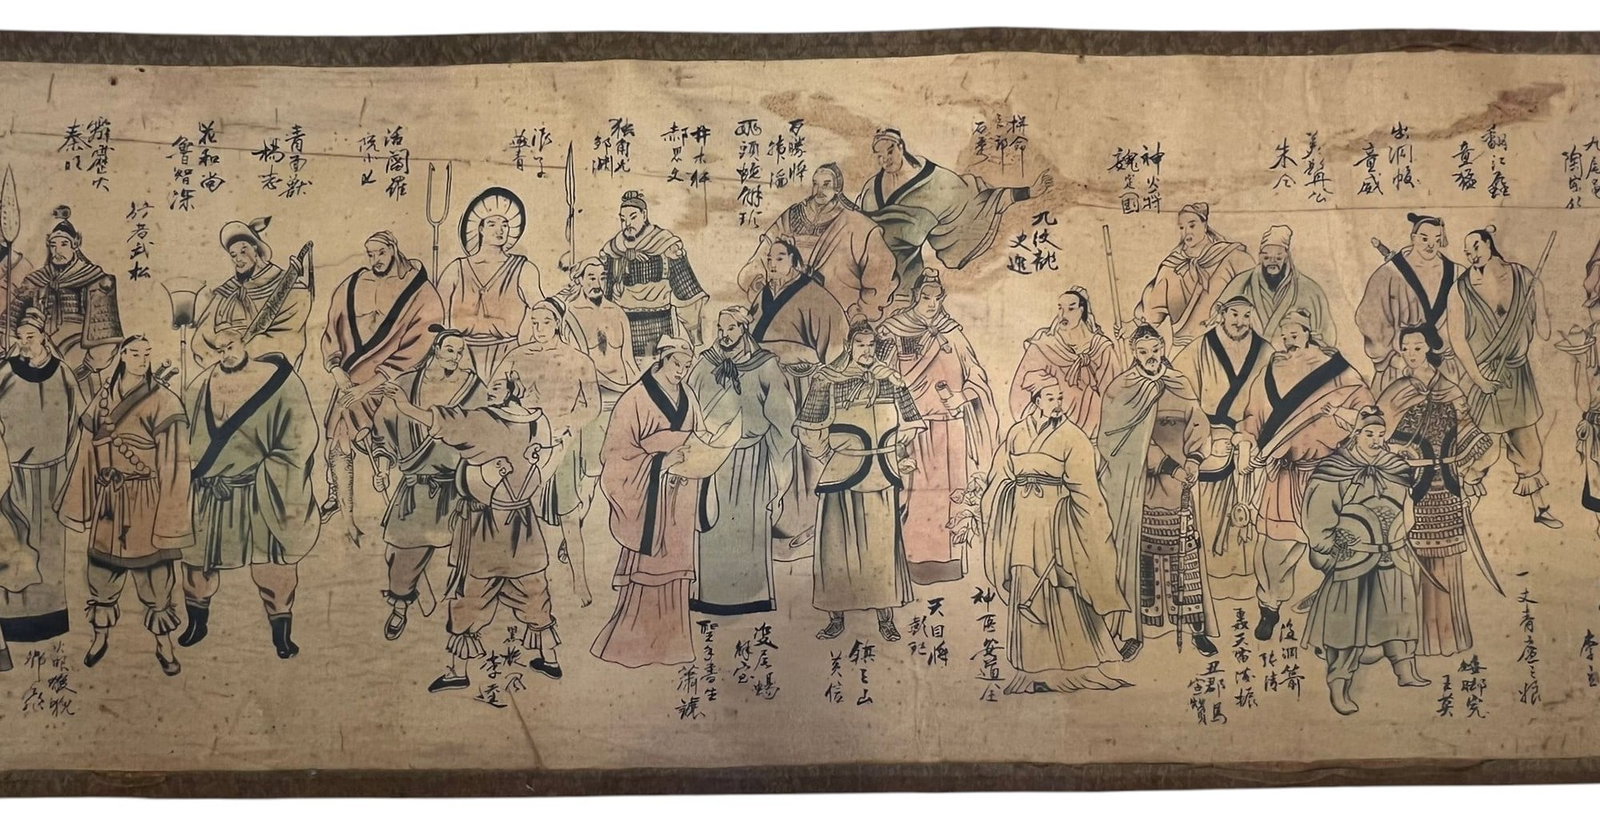 九尾龜
陶宗旺
翻江蜃
童猛
出洞蛟
童威
朱仝
神火將
魏定國
拚命三郎
石秀
九紋龍
史進
百勝將
韓滔
兩頭蛇解珍
井木犴
郝思文
獨角龍
鄒潤
浪子
燕青
活閻羅
阮小七
青面獸
楊志
花和尚
魯智深
行者武松
霹靂火
秦明
一丈青扈三娘
矮腳虎
王英
沒羽箭
張清
轟天雷凌振
丑郡馬
宣贊
神医安道全
天目將
彭玘
鎮三山
黃信
雙尾蠍
解寶
聖手書生
蕭讓
黑旋風
李逵
火眼狻猊
鄧飛